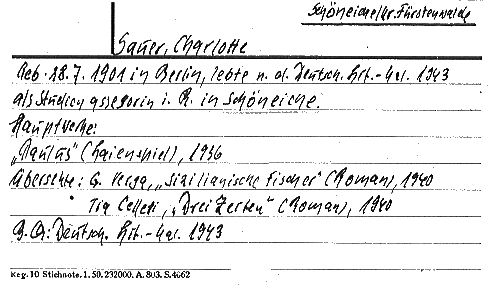 Schöneiche/Kr. Fürstenwalde
Sauer, Charlotte
Geb. 28.7.1901 in Berlin, lebte n. d. Deutsch. Lit.-Kal. 1943
als Studienassessorin i. R. in Schöneiche.
Hauptwerke:
„Paulus" (Laienspiel), 1936
Übersetzte: G. Verga, „Sizilianische Fischer" (Roman), 1940
Tia Celletti, „Drei Zeiten" (Roman), 1940
B. Q.: Deutsch. Lit.-Kal. 1943
Reg. 10 Stichnote. 1. 50. 232000. A. 803. S. 4662